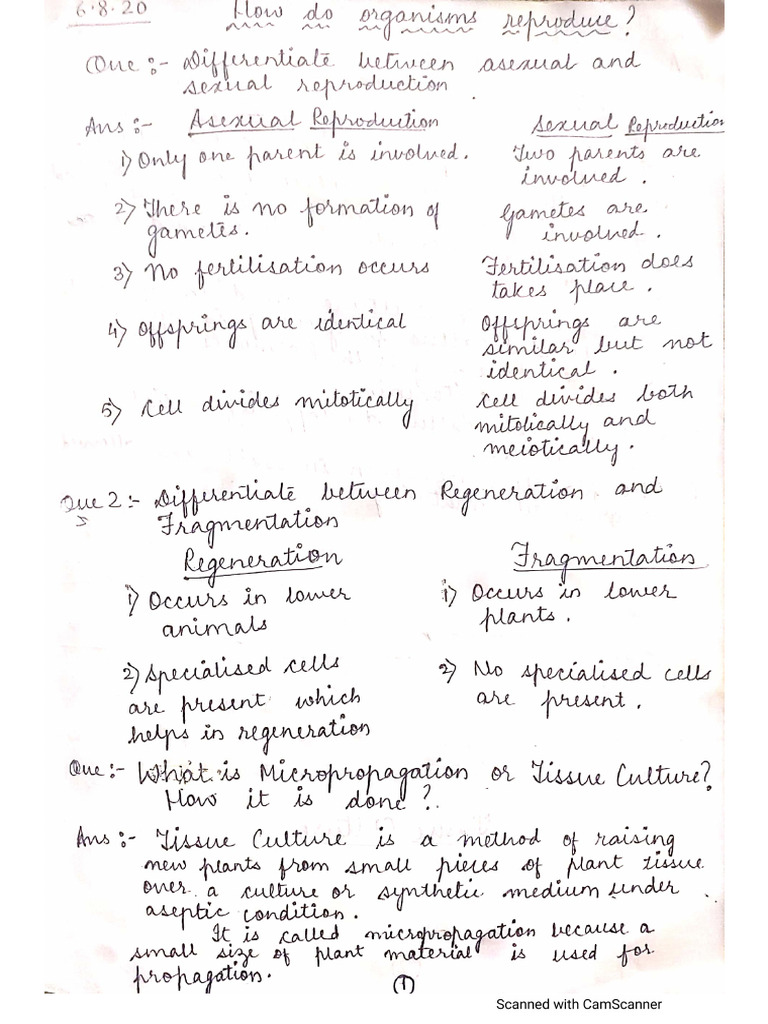 6.8.20
How do organisms reproduce?
Que :- Differentiate between asexual and
sexual reproduction
Ans :- Asexual Reproduction Sexual Reproduction
1) Only one parent is involved. Two parents are
involved.
2) There is no formation of Gametes are
gametes. involved.
3) No fertilisation occurs Fertilisation does
takes place.
4) Offsprings are identical Offsprings are
similar but not
identical.
5) Cell divides mitotically Cell divides both
mitotically and
meiotically.
Que 2:- Differentiate between Regeneration and
Fragmentation
Regeneration Fragmentation
1) Occurs in lower 1) Occurs in lower
animals plants.
2) Specialised cells 2) No specialised cells
are present which are present.
helps in regeneration
Que :- What is Micropropagation or Tissue Culture?
How it is done?
Ans :- Tissue Culture is a method of raising
new plants from small pieces of plant tissue
over a culture or synthetic medium under
aseptic condition.
It is called micropropagation because a
small size of plant material is used for
propagation.
(1)
Scanned with CamScanner